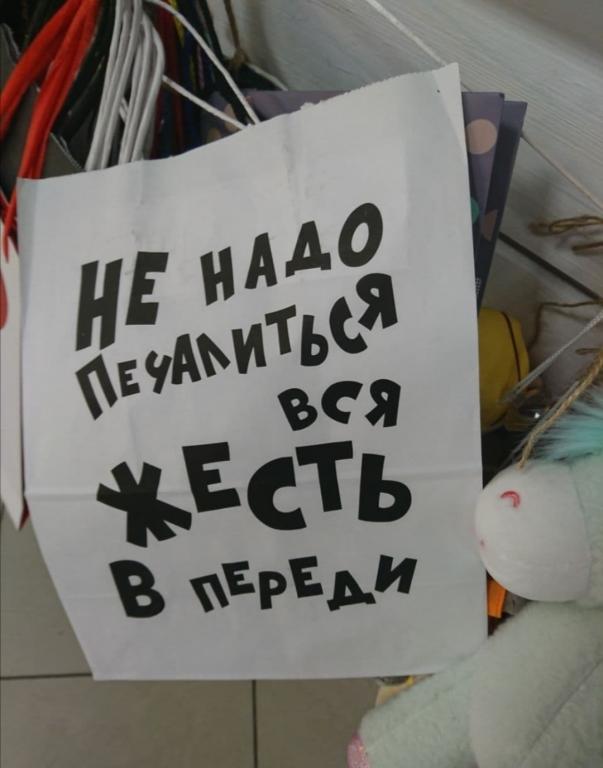 НЕ НАДО
ПЕЧАЛИТЬСЯ
ВСЯ
ЖЕСТЬ
В ПЕРЕДИ